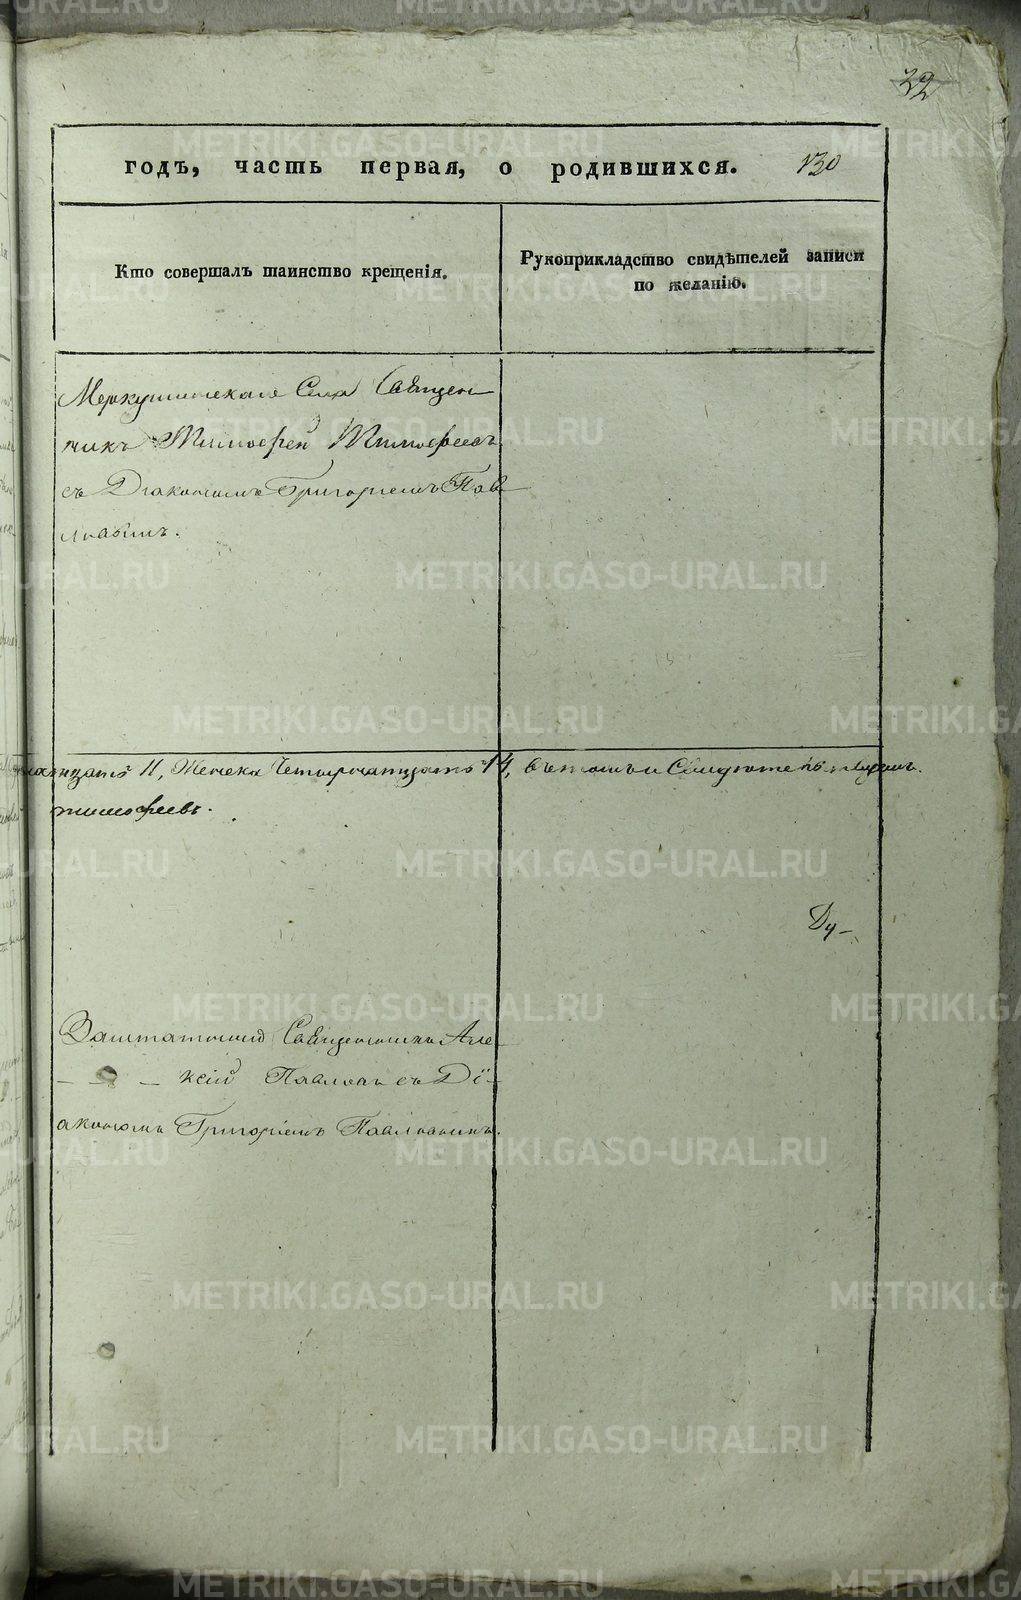 22
годъ, часть первая, о родившихся. 130
Кто совершалъ таинство крещенія.
Рукоприкладство свидѣтелей записи по желанію.
Меркушинскаго Села Священ
никъ Тимофей Тимофеевъ
съ Діакономъ Григоріемъ Пав
ловымъ.
11, Женска Четырнатцать 14, въ томъ и
Тимофеевъ.
Ду-
Заштатной Священникъ Але
ксій Павловъ съ Ді-
акономъ Григоріемъ Павловымъ.
METRIKI.GASO-URAL.RU